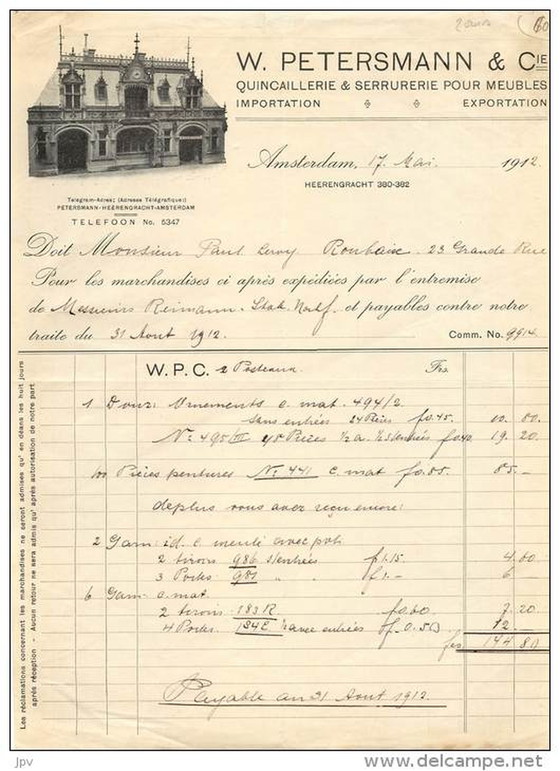 W. PETERSMANN & CIE
QUINCAILLERIE & SERRURERIE POUR MEUBLES
IMPORTATION EXPORTATION
Amsterdam, 17 Mai 1912
HEERENGRACHT 380-382
Telegram-Adres; (Adresse Télégrafique:)
PETERSMANN-HEERENGRACHT-AMSTERDAM
TELEFOON No. 5347
Doit Monsieur Paul Leroy Roubaix. 23 Grande Rue
Pour les marchandises ci après expédiées par l'entremise
de Messieurs Reimann et payables contre notre
traite du 31 Aout 1912. Comm. No. 9914
W. P. C. 2 Posteaux Frs.
1 Douz: Ornements c. mat. 494/2
sans entrées 24 Pièces f 0.45 10.80
No 495/III 48 Pièces 1/2 a. 1/2 s/entrées f 0.40 19.20
100 Pièces pentures No 441 c. mat f 0.85 85.-
deplus vous avez reçu encore:
2 Garn: id. c
2 tiroirs 986 s/entrées f 1.15 4.60
3 Portes 981 " " f 1.- 6 -
6 Garn. c. mat
2 tiroirs 183 R f 0.60 7.20
4 Portes 184 L avec entrées f 0.50 12.-
frs 144.80
Payable au 31 Aout 1912.
Les réclamations concernant les marchandises ne seront admises qu' en déans les huit jours
après réception - Aucun retour ne sera admis qu' après autorisation de notre part
jpv www.delcampe.net